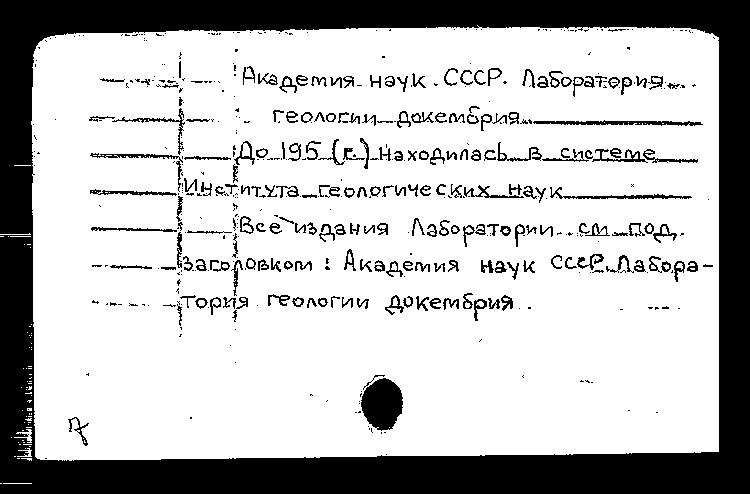 Академия наук СССР. Лаборатория
геологии докембрия
До 195 (г.) находилась в системе
Института геологических наук
Все издания Лаборатории см под
заголовком: Академия наук СССР. Лабора-
тория геологии докембрия
7